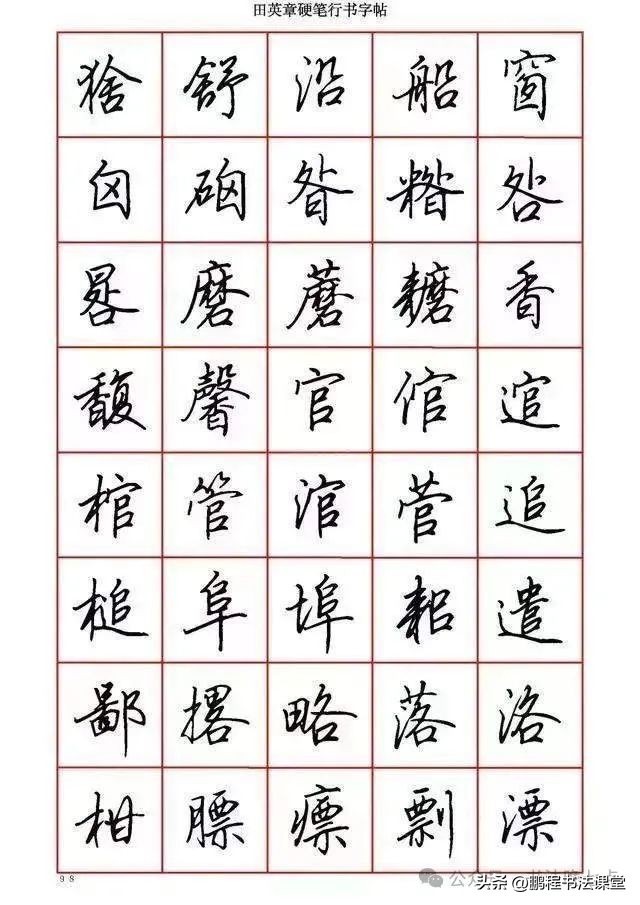 田英章硬笔行书字帖
猞 舒 沿 船 窗
囱 硇 昝 糌 咎
晷 磨 蘑 耱 香
馥 馨 官 倌 逭
棺 管 涫 菅 追
槌 阜 埠 耜 遣
鄙 撂 略 落 洛
柑 膘 瘭 剽 漂
98
头条 @鹏程书法课堂